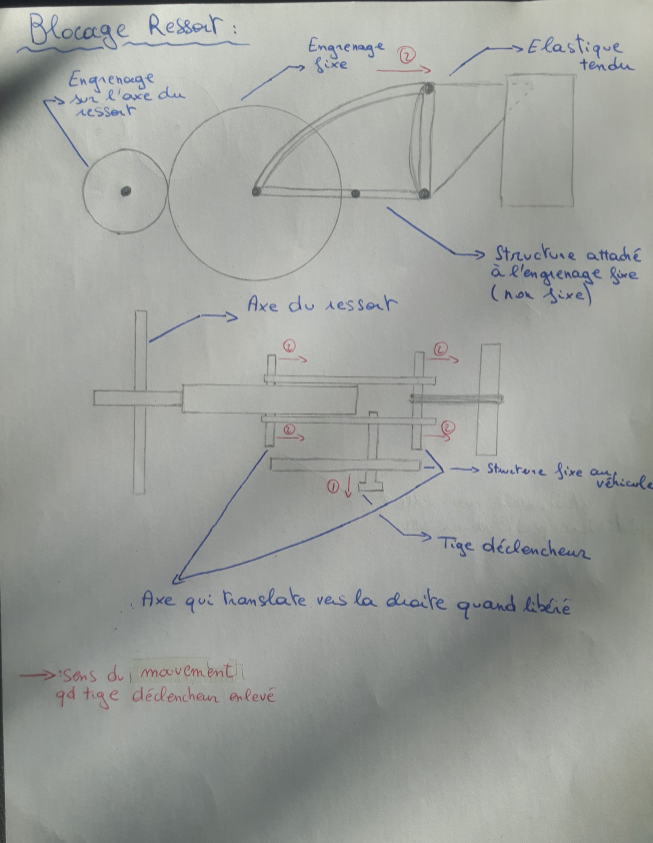 Blocage Ressort :
Engrenage
fixe
②
Elastique
tendu
Engrenage
sur l'axe du
ressort
Structure attaché
à l'engrenage fixe
(non fixe)
Axe du ressort
②
②
②
②
Structure fixe au
véhicule
①
Tige déclencheur
Axe qui translate vers la droite quand libéré
→ : sens du mouvement
qd tige déclencheur enlevé